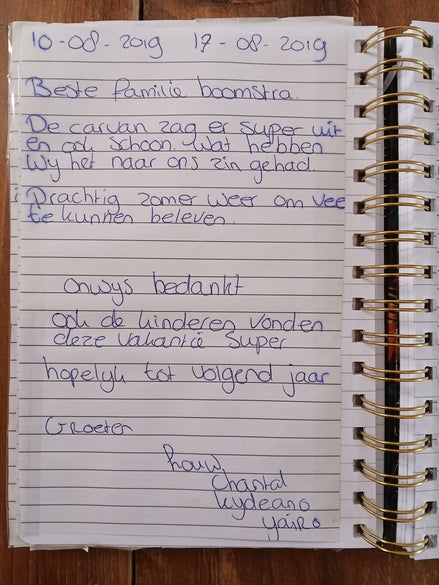 10-08-2019 17-08-2019
Beste familie boomstra.
De carvan zag er super uit
en ook schoon. wat hebben
wy het naar ons zin gehad.
Prachtig zomer weer om vee
te kunnen beleven.
onwys bedankt
ook de kinderen vonden
deze vakantie super
hopelyk tot volgend jaar
Groeten
Chantal
kydeano
yairo